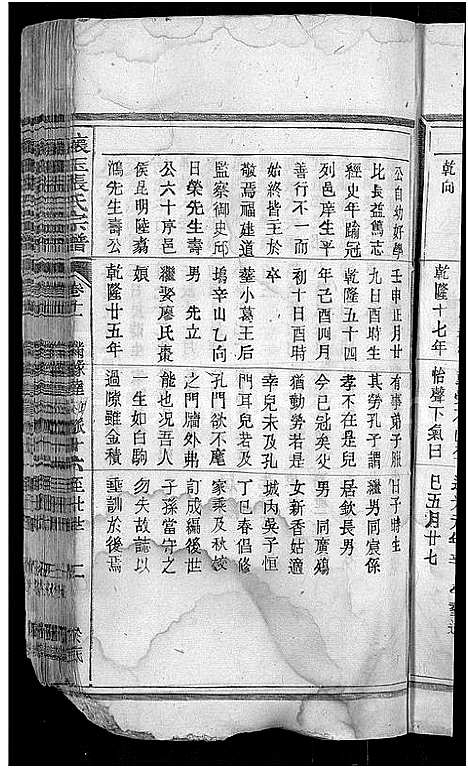 乾向
乾隆十七年
怡聲下氣曰
巳五月廿七
公自幼好學
比長益篤志
經史年踰冠
列邑庠生平
善行不一而
始終皆主於
敬焉福建道
監察御史邱
日榮先生壽
公六十序邑
侯昆明陸嘉
鴻先生壽公
壬申正月廿
九日酉時生
乾隆五十四
年己酉四月
初十日酉時
卒
塟小葛王后
塢辛山乙向
男 先立
繼娶廖氏棗
娘
乾隆廿五年
有事弟子服
其勞孔子謂
孝不在是兒
今已冠矣父
猶動勞若是
幸兒未及孔
門耳兒若及
孔門欲不麾
之門牆外弗
能也况吾人
一生如白駒
過隙雖金積
日子時生
繼男同宸係
居欽長男
男 同廣殤
女新香姑適
城内吳子恒
丁巳春倡修
家乘及秋校
訂成編後世
子孫當守之
勿失故誌以
垂訓於後焉
張氏宗譜
卷十
廿六至廿世